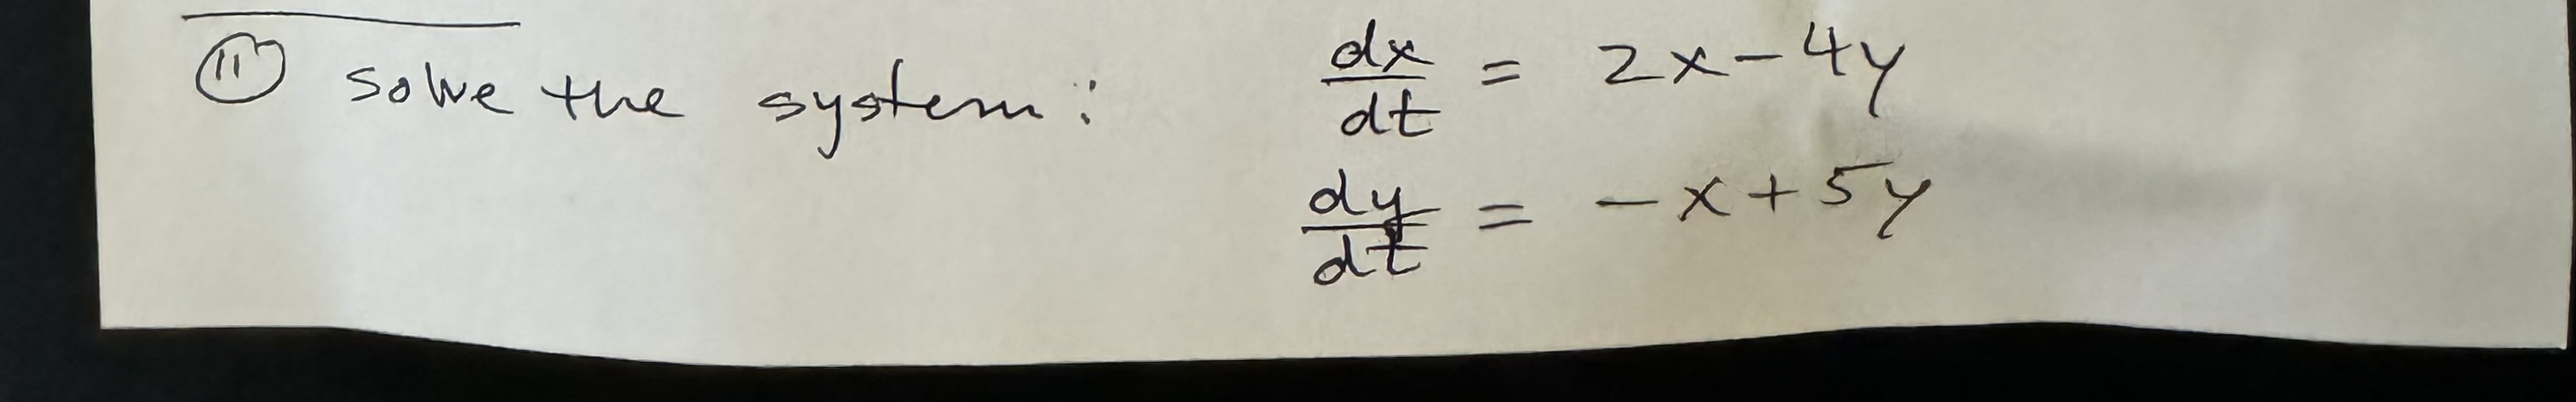 ⑪ Solve the system: dx/dt = 2x - 4y
dy/dt = -x + 5y